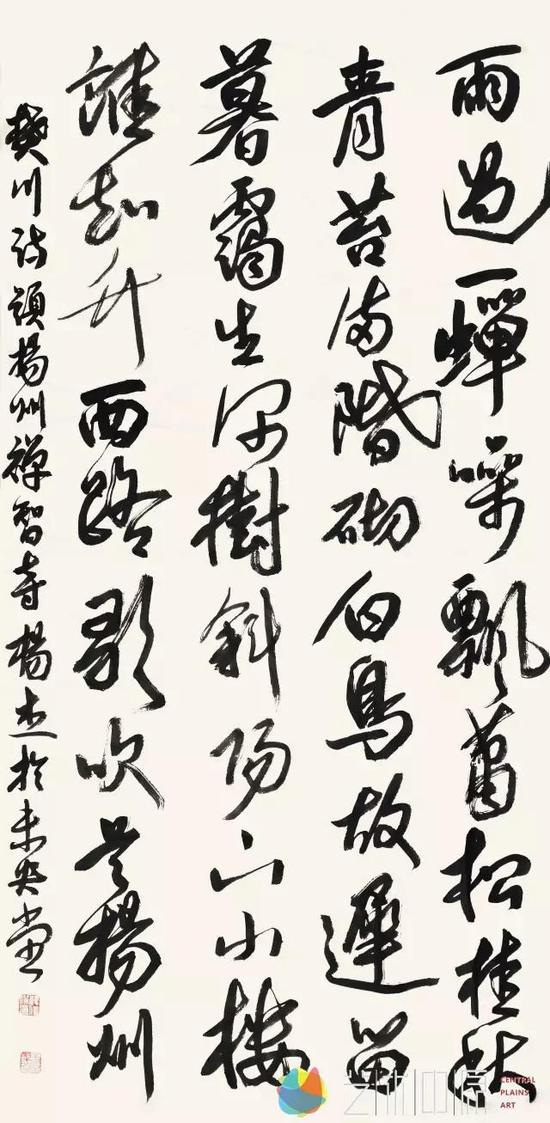 雨過一蟬噪飄蕭松桂秋
青苔滿階砌白鳥故遲留
暮靄生深樹斜陽下小樓
誰知竹西路歌吹是揚州
樊川詩題揚州禪智寺楊杰於未央堂
艺术中原
CENTRAL
PLAINS
ART